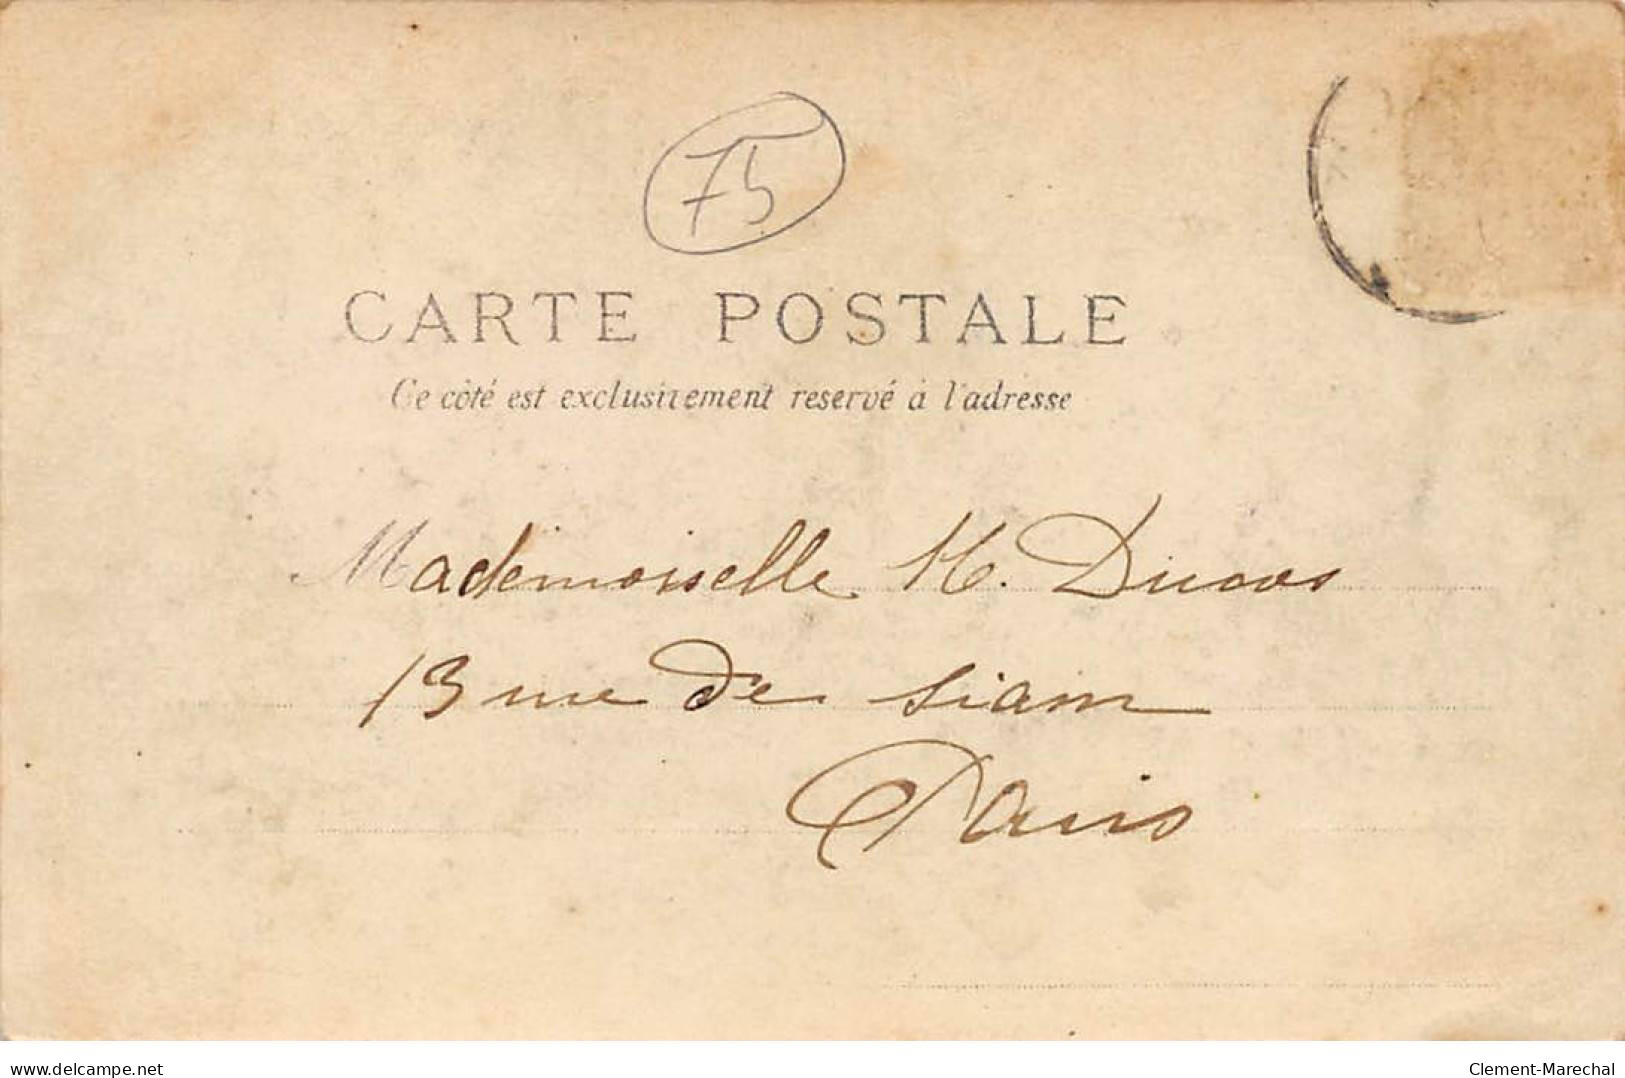 75
CARTE POSTALE
Ce côté est exclusivement reservé à l'adresse
Mademoiselle H. Ducos
13 rue de Siam
Paris
delcampe.net
Clement-Marechal